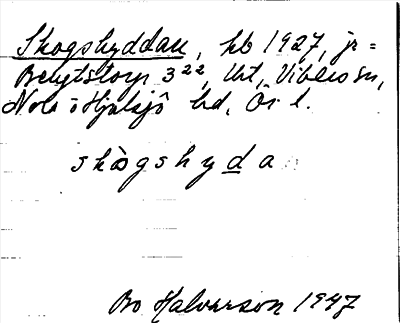 Skogshyddan, hb 1927, jr =
Bengtstorp 3²², Uht, Vibero sn,
Nora o Hjulsjö hd, Ör l.
skògshyda
Bo Halvarson 1947